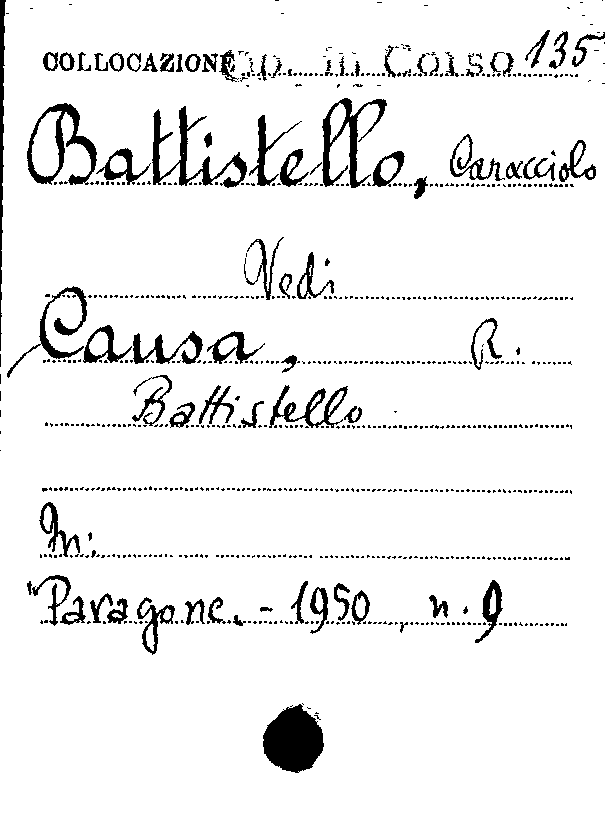 COLLOCAZIONE Op. in Corso 135
Battistello, Caracciolo
Vedi
Causa, R.
Battistello
In:
"Paragone. - 1950, n. 9